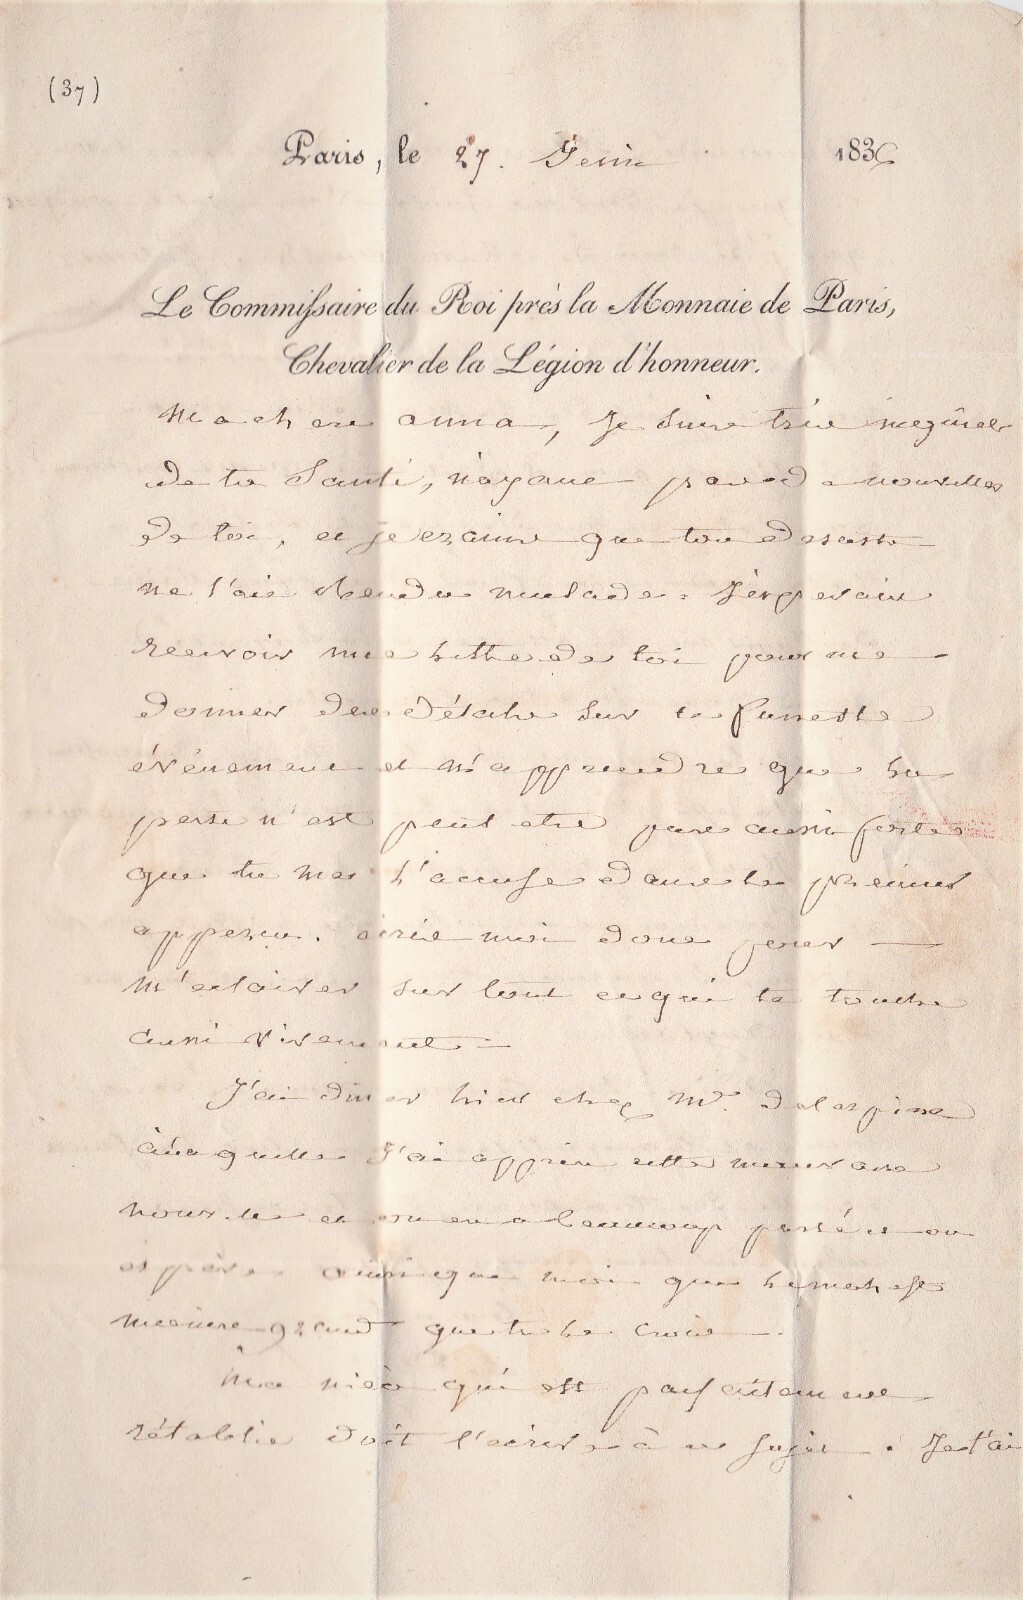 (37)
Paris, le 27. 1836
Le Commissaire du Roi près la Monnaie de Paris,
Chevalier de la Légion d'honneur.
Ma chere anna, je suis très inquiet
de ta Santé, n'ayant pas de nouvelles
de toi, et je crains que ton desastre
ne t'ait rendu malade. J'esperais
recevoir une lettre de toi pour me
donner des détails sur ce funeste
événement et m'apprendre que la
perte n'est peut etre pas aussi forte
que tu me l'accuse dans le premier
apperçu. ecris moi donc pour
m'eclairer sur tout ce qui te touche
aussi vivement.
J'ai diner hier chez Mr. delespine
à laquelle J'ai appris cette mauvaise
nouvelle et on en a beaucoup parlé et on
espère ainsi que moi que le mal est
moins grand que tu le crois.
Ma nièce qui est parfaitement
rétablie doit t'ecrire à ce sujet. Je t'ai